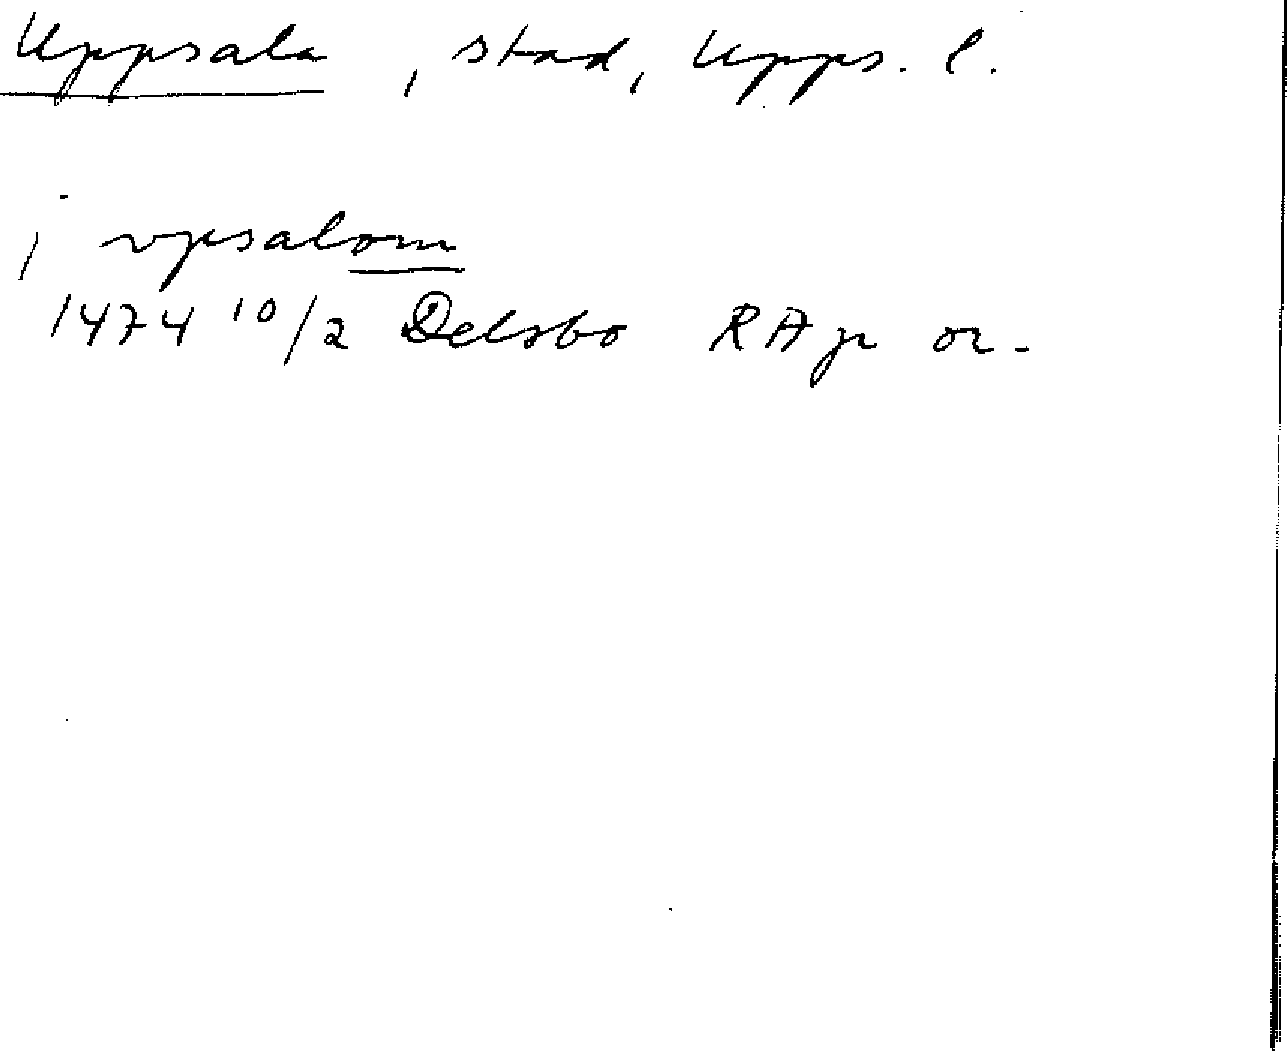 Uppsala, stad, Upps. l.
i vpsalom
1474 10/2 Delsbo RAp or.